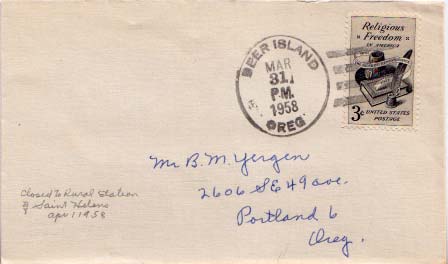 DEER ISLAND
MAR
31
P.M.
1958
OREG
Religious
Freedom
IN AMERICA
3¢ UNITED STATES
POSTAGE
Mr B.M. Yergen
2606 SE 49 ave.
Portland 6
Oreg.
Closed To Rural Station
of Saint Helens
apr 1 1958